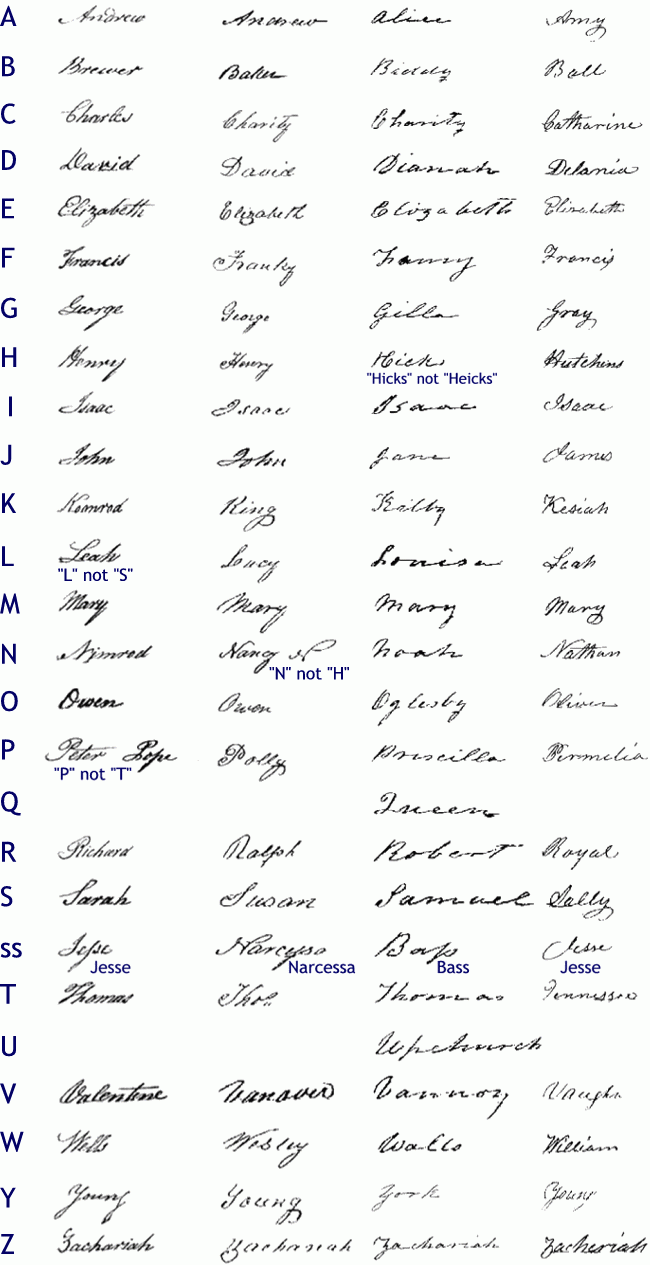 A Andrew Andrew Alice Amy
B Brewer Baker Biddy Ball
C Charles Charity Charity Catharine
D David David Dianah Delania
E Elizabeth Elizabeth Elizabeth Elizabeth
F Francis Franky Fanny Francis
G George George Gilla Gray
H Henry Henry Hicks Hutchins
"Hicks" not "Heicks"
I Isaac Isaac Isaac Isaac
J John John Jane James
K King Kilby Kesiah
L Leah Lucy Louisa Leah
"L" not "S"
M Mary Mary Mary Mary
N Nimrod Nancy N Noah Nathan
"N" not "H"
O Owen Owen Oglesby Oliver
P Peter Pope Polly Priscilla Permelia
"P" not "T"
Q Queen
R Richard Ralph Robert Royal
S Sarah Susan Samuel Sally
ss Jesse Narcyssa Bass Jesse
Jesse Narcessa Bass Jesse
T Thomas Thos. Thomas Tennessee
U Upchurch
V Valentine Vanover Vannoy Vaughn
W Wells Wesley Walls William
Y Young Young York Young
Z Zachariah Zachariah Zachariah Zacheriah